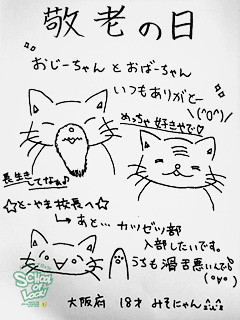 敬老の日
おじーちゃんとおばーちゃん
いつもありがとー
\(^o^)/
めっちゃ好きやで♡
長生き
してなぁ♪
☆とーやま校長へ☆
↳あと…カツゼツ部
入部したいです。
うちも滑舌悪いんでs
(○v○)
SCHOOL OF LOCK!
大阪府 18才 みそにゃん